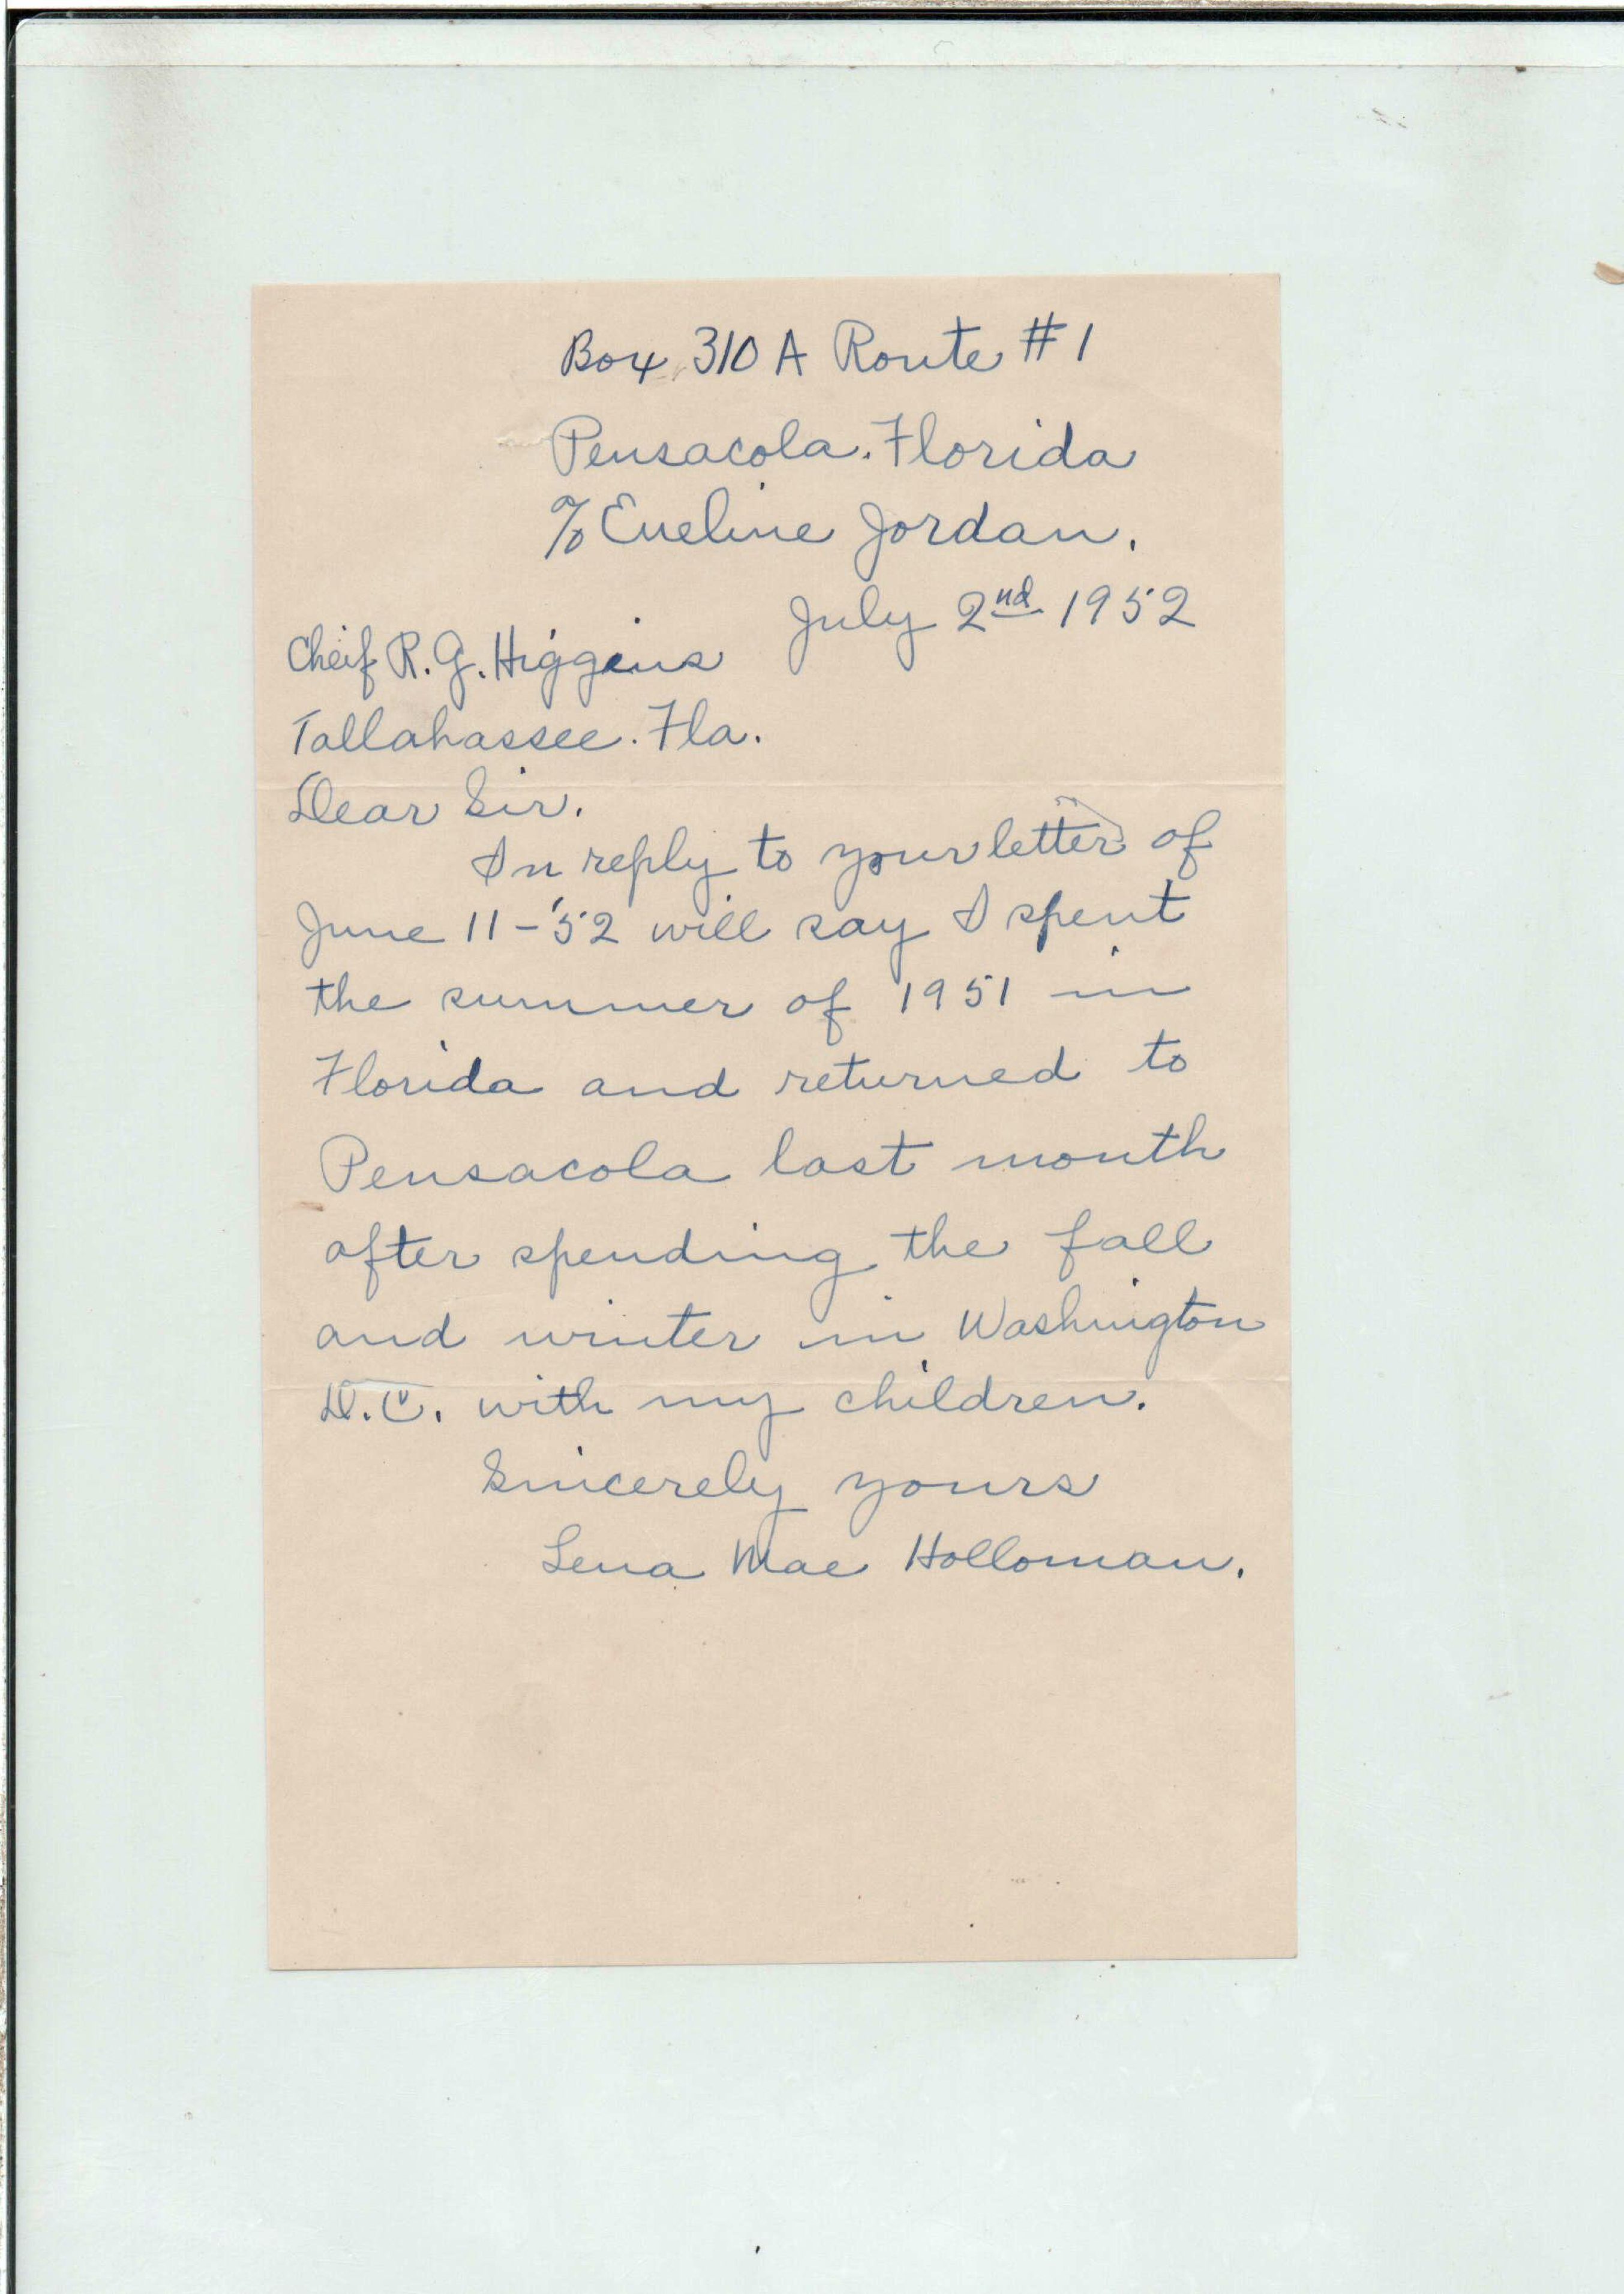 Box 310 A Route #1
Pensacola. Florida
% Eveline Jordan.
July 2nd 1952
Cheif R. G. Higgins
Tallahassee. Fla.
Dear Sir.
In reply to your letter of
June 11-'52 will say I spent
the summer of 1951 in
Florida and returned to
Pensacola last month
after spending the fall
and winter in Washington
D.C. with my children.
Sincerely yours
Lena Mae Holloman.